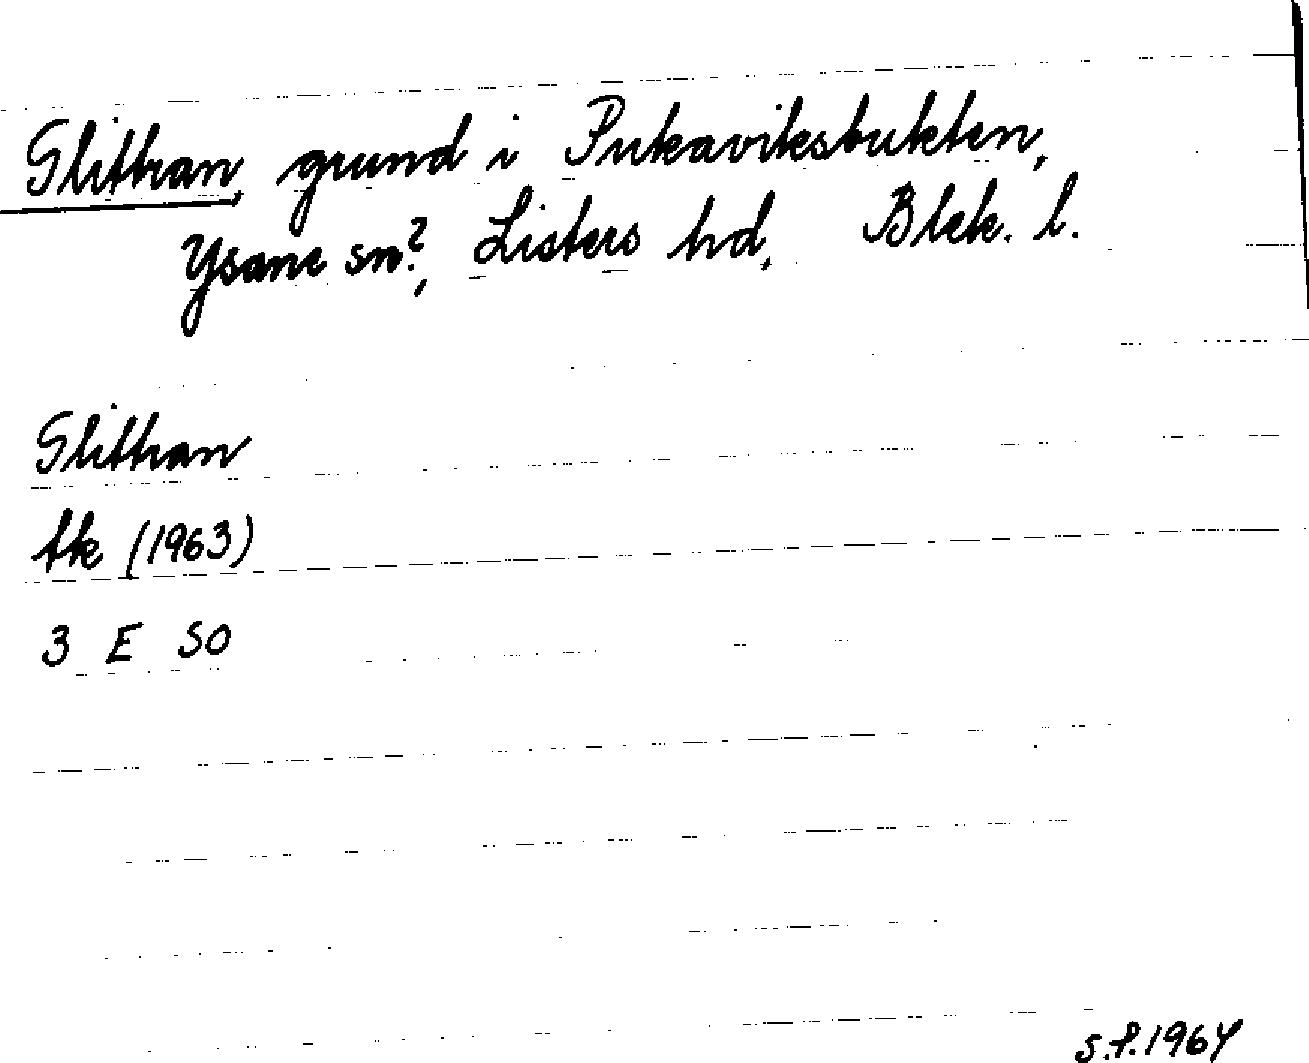 Glithan, grund i Pukaviksbukten,
Ysane sn?, Listers hd, Blek. l.
Glithan
tk (1963)
3 E SO
S.P. 1964